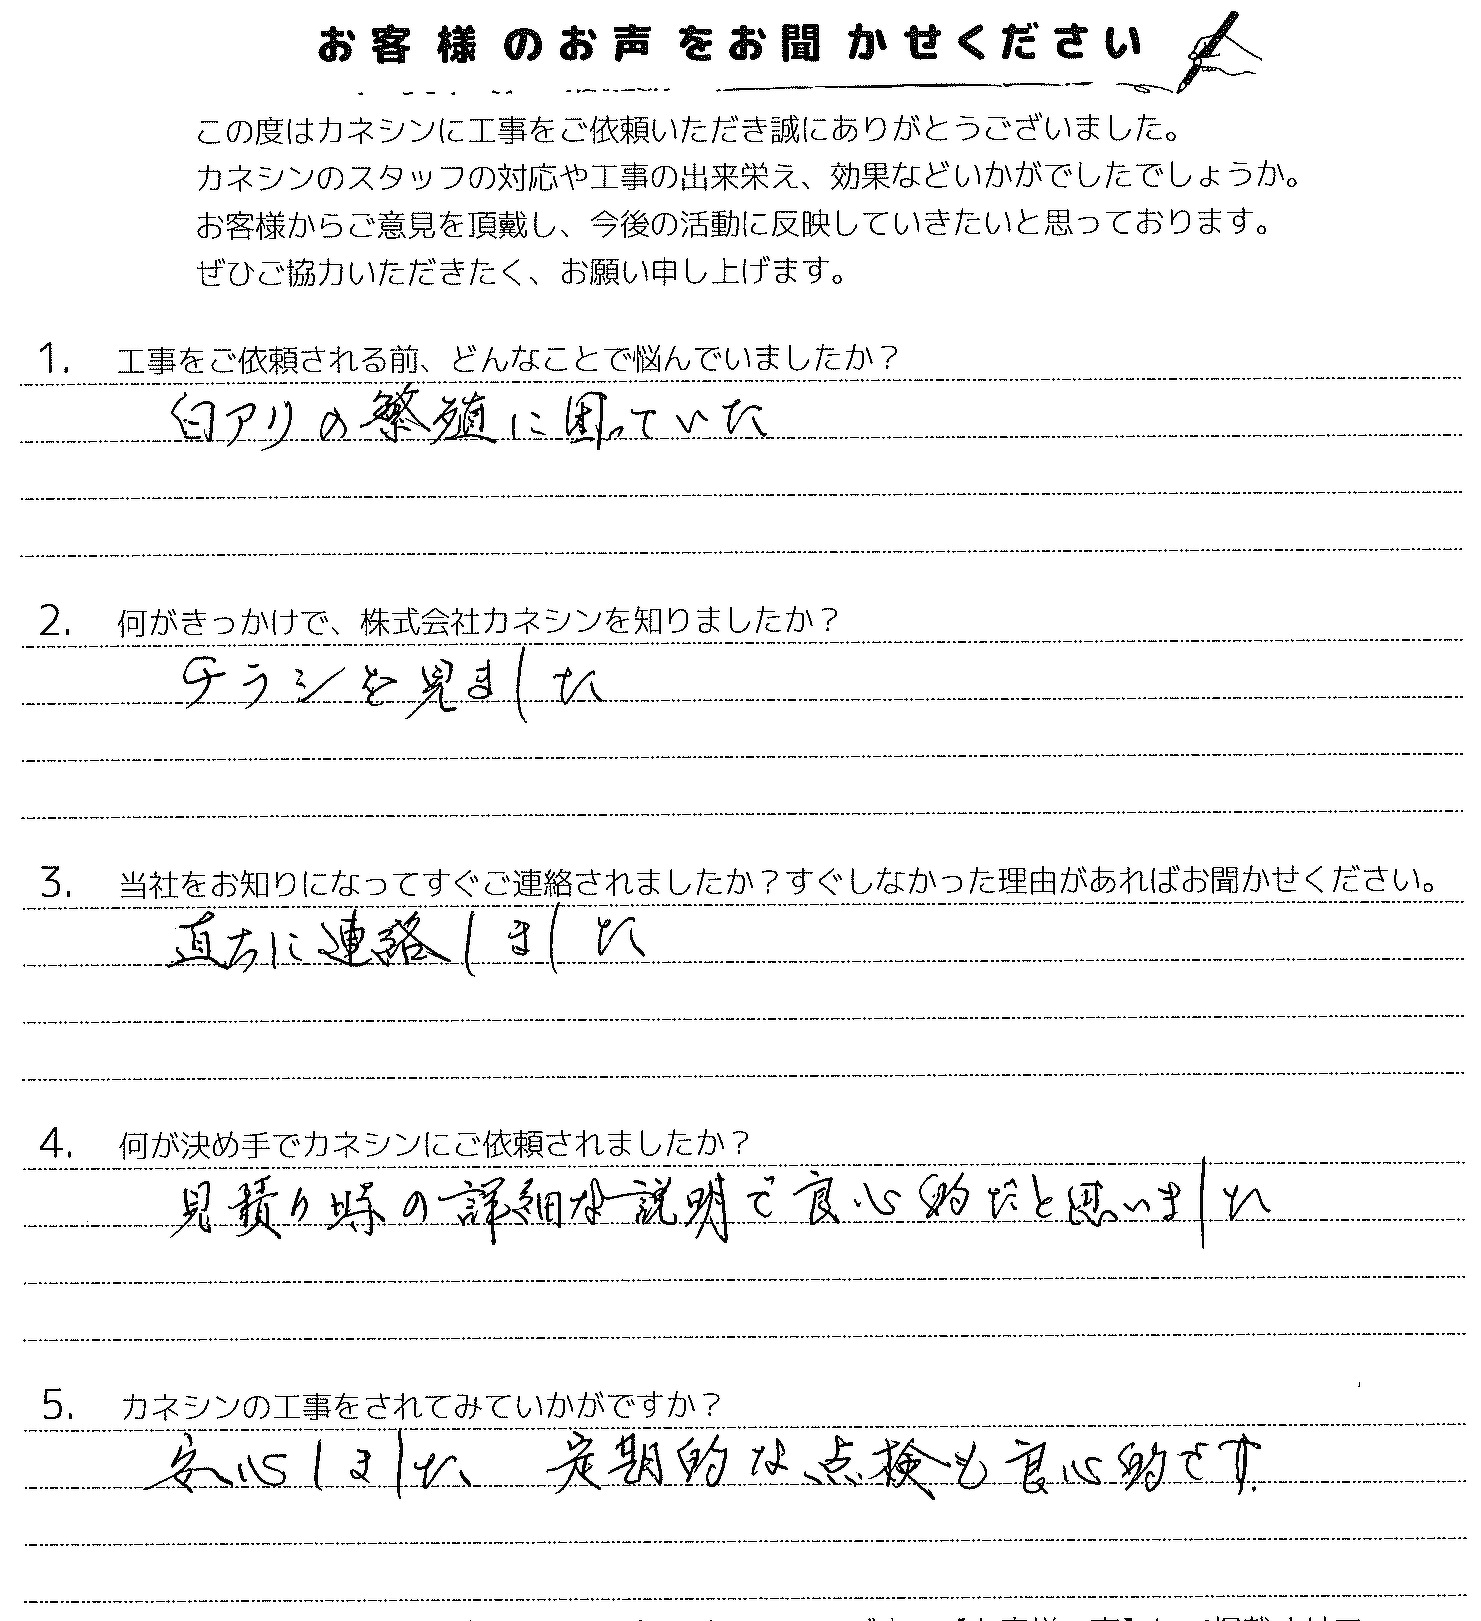 お客様のお声をお聞かせください
この度はカネシンに工事をご依頼いただき誠にありがとうございました。
カネシンのスタッフの対応や工事の出来栄え、効果などいかがでしたでしょうか。
お客様からご意見を頂戴し、今後の活動に反映していきたいと思っております。
ぜひご協力いただきたく、お願い申し上げます。
1. 工事をご依頼される前、どんなことで悩んでいましたか？
白アリの繁殖に困っていた
2. 何がきっかけで、株式会社カネシンを知りましたか？
チラシを見ました
3. 当社をお知りになってすぐご連絡されましたか？すぐしなかった理由があればお聞かせください。
直ちに連絡しました
4. 何が決め手でカネシンにご依頼されましたか？
見積り時の詳細な説明で良心的だと思いました
5. カネシンの工事をされてみていかがですか？
安心しました 定期的な点検も良心的です